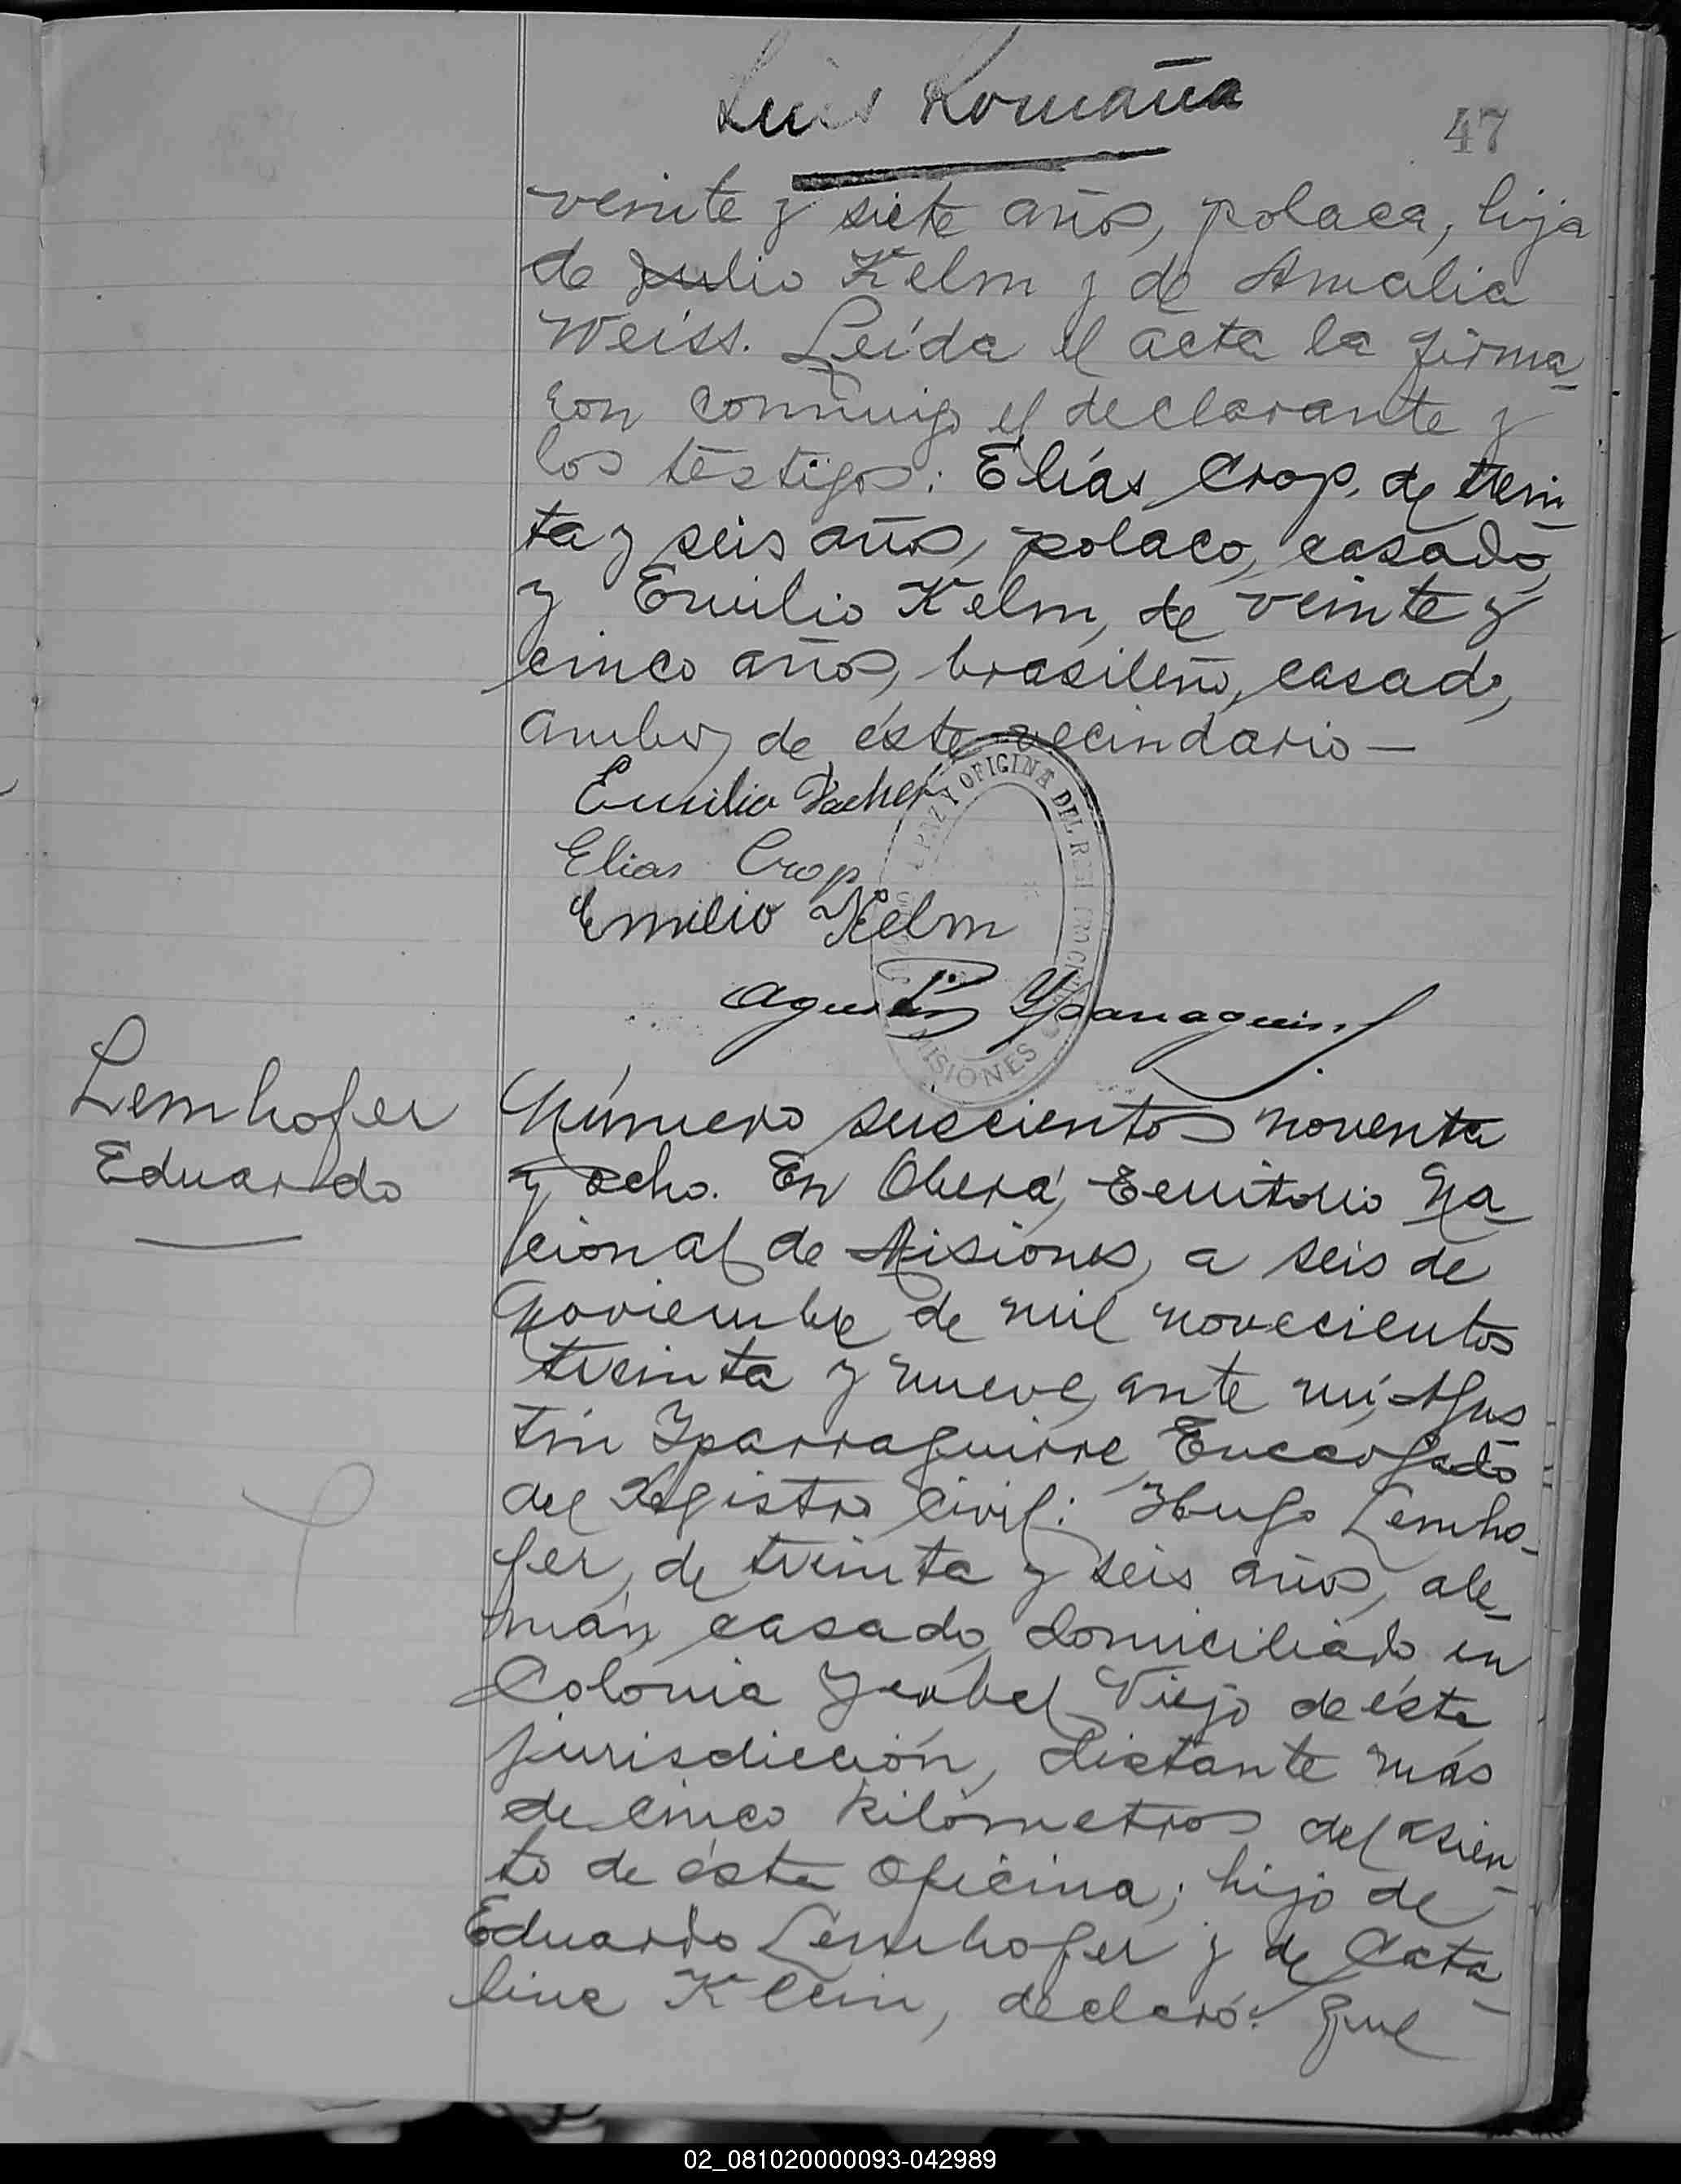 Luis Romaña
47
veinte y siete años, polaca, hija
de Julio Kelm y de Amalia
Weiss. Leída el acta la firma-
ron conmigo el declarante y
los testigos: Elías Crop, de trein-
ta y seis años, polaco, casado,
y Emilio Kelm, de veinte y
cinco años, brasileño, casado,
ambos de éste vecindario—
Emilio
Elias Crop
Emilio Kelm
Agustín Yparraguirre
PAZ Y OFICINA DEL
MISIONES
Lemhofer
Eduardo
Número seiscientos noventa
y ocho. En Oberá, Territorio Na-
cional de Misiones, a seis de
Noviembre de mil novecientos
treinta y nueve, ante mí, Agus
tín Yparraguirre Encargado
del Registro Civil: Hugo Lemho-
fer, de treinta y seis años, ale-
mán, casado, domiciliado en
Colonia Yerbal Viejo de ésta
jurisdicción, distante más
de cinco kilómetros del asien-
to de ésta Oficina; hijo de
Eduardo Lemhofer y de Cata-
lina Klein, declaró: Que
02_081020000093-042989